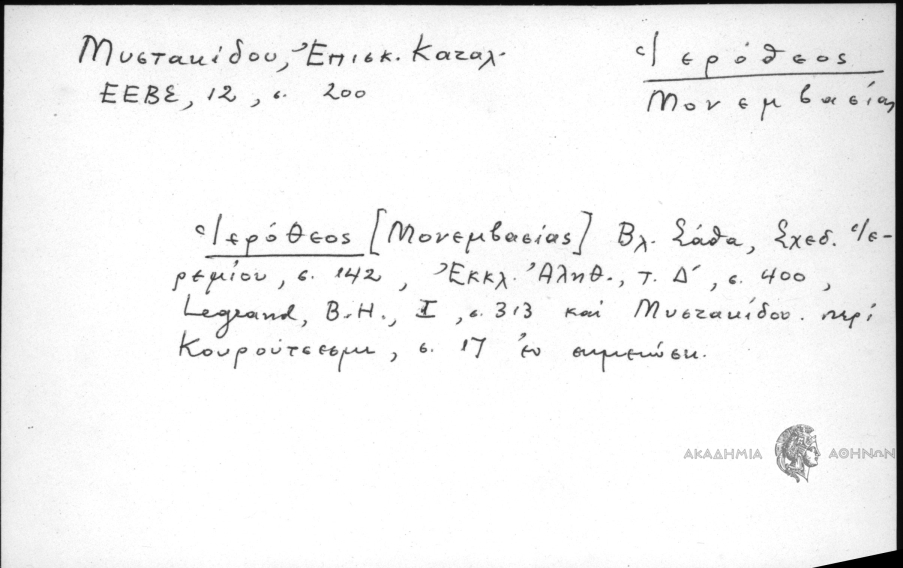 Μυστακίδου, Ἐπισκ. Καταλ.
ΕΕΒΣ, 12, σ. 200
Ἱερόθεος
Μονεμβασίας
Ἱερόθεος [Μονεμβασίας] Βλ. Σάθα, Σχεδ. Ἱε-
ρεμίου, σ. 142, Ἐκκλ. Ἀληθ., τ. Δ΄, σ. 400,
Legrand, B.H., I, σ. 313 καὶ Μυστακίδου. περὶ
Κουρούτσεσμε, σ. 17 ἐν σημειώσει.
ΑΚΑΔΗΜΙΑ ΑΘΗΝΩΝ